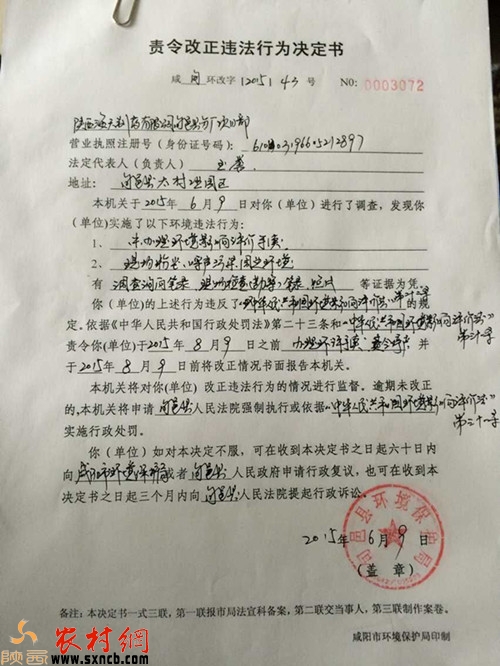 责令改正违法行为决定书
咸 旬 环改字 [2015] 43 号 N0: 0003072
营业执照注册号（身份证号码）:
法定代表人（负责人）
地址: 旬邑县太村
本机关于2015年 6月 9日对你（单位）进行了调查，发现你
(单位)实施了以下环境违法行为:
1、 未办理环境影响评价手续
2、 现场粉尘、噪声污染周边环境
有 调查询问笔录 现场检查(勘察)笔录 照片 等证据为凭。
你（单位）的上述行为违反了《中华人民共和国环境影响评价法》 的规
定。依据《中华人民共和国行政处罚法》第二十三条和《中华人民共和国环境影响评价法》
责令你(单位)于2015年 8月 9日之前 办理环评手续 并
于2015年 8月 9日前将改正情况书面报告本机关。
本机关将对你(单位) 改正违法行为的情况进行监督。逾期未改正
的,本机关将申请 旬邑县 人民法院强制执行或依据《中华人民共和国环境影响评价法》
第三十一条
实施行政处罚。
你（单位）如对本决定不服，可在收到本决定书之日起六十日内
向 咸阳市环境保护局 或者 旬邑县 人民政府申请行政复议，也可在收到本
决定书之日起三个月内向 旬邑县 人民法院提起行政诉讼。
旬邑县环境保护局
2015年 6月 9日
（盖 章）
备注: 本决定书一式三联，第一联报市局法宣科备案，第二联交当事人，第三联制作案卷。
咸阳市环境保护局印制
陕西 农村網
www.sxncb.com